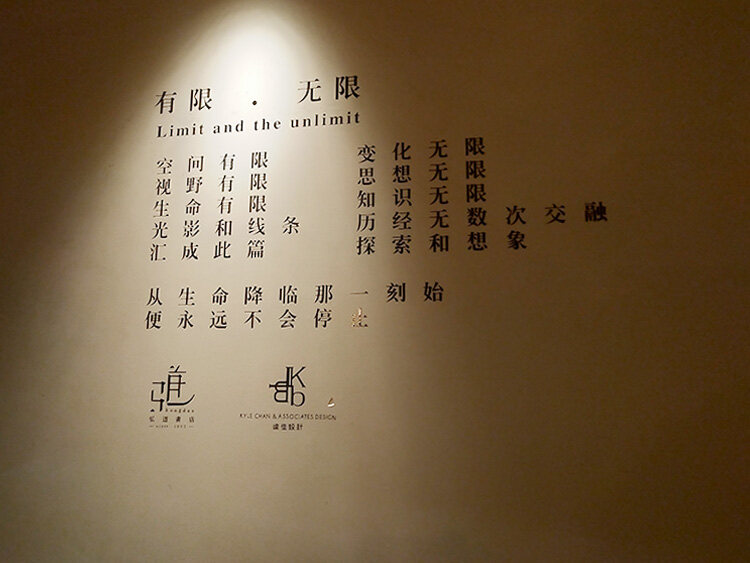 有限 · 无限
Limit and the unlimit
空间有限 变化无限
视野有限 思想无限
生命有限 知识无限
光影和线条 历经无数次交融
汇成此篇 探索和想象
从生命降临那一刻始
便永远不会停止
hongdao
弘道書店
KYLE CHAN & ASSOCIATES DESIGN
設計